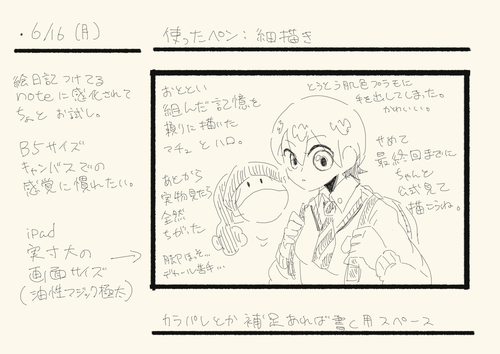 ・6/16（月）
使ったペン：細描き
絵日記つけてる
noteに感化されて
ちょっとお試し。
B5サイズ
キャンバスでの
感覚に慣れたい。
iPad
実寸大の
画面サイズ
（油性マジック極太）
おととい
組んだ記憶を
頼りに描いた
マチュとハロ。
あとから
実物見たら
全然
ちがった
デカール苦手…
とうとう肌色プラモに
手を出してしまった。
かわいい。
せめて
最終回までに
ちゃんと
公式見て
描こうね。
カラパレとか補足あれば書く用スペース